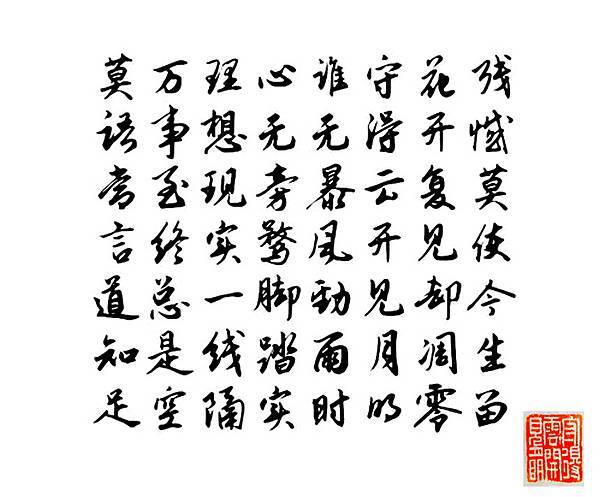 莫语常言道知足
万事至终总是空
理想现实一线隔
心无旁骛脚踏实
谁无暴风劲雨时
守得云开见月明
花开复见却凋零
残憾莫使今生留
守得雲開見月明